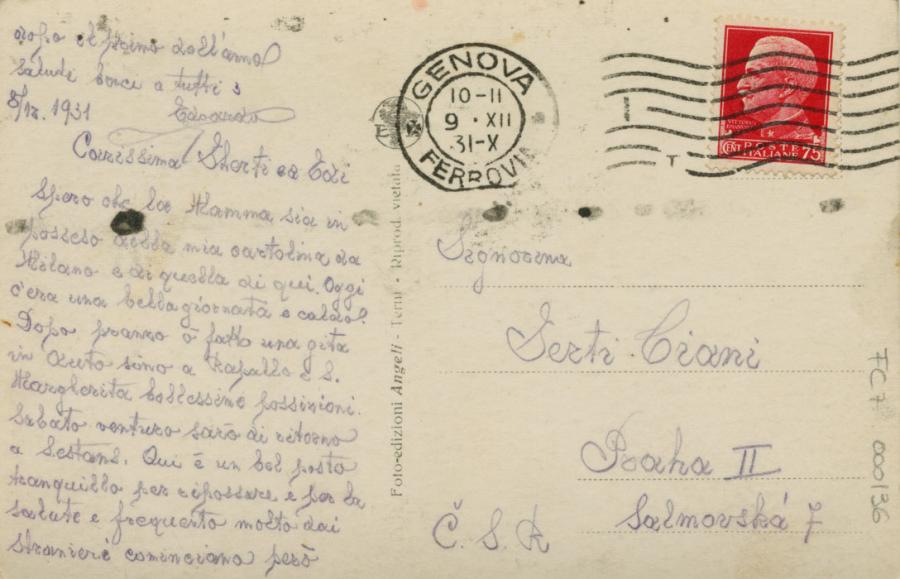 dopo il primo dell'anno
Saluti baci a tutti 3
8/12. 1931 Edoardo
Carissima Gherti ed Edi
Spero che la Mamma sia in
posseso della mia cartolina da
Milano e di quella di qui. Oggi
c'era una bella giornata e caldo!
Dopo pranzo ò fatto una gita
in Auto sino a Rapallo e S.
Margherita bellissime possizioni.
Sabato venturo sarò di ritorno
a Sestans. Qui é un bel posto
tranquillo per ripossare e per la
salute e frequento molto dai
stranieri cominciano però
Foto-edizioni Angeli - Terni - Riprod. vietata
GENOVA
10-11
9 · XII
31-X
FERROVIA
POSTE
CENT ITALIANE 75
T
Signorina
Gerti Ciani
Praha II
Salmovská 7
Č. S. R
FC 7 000136